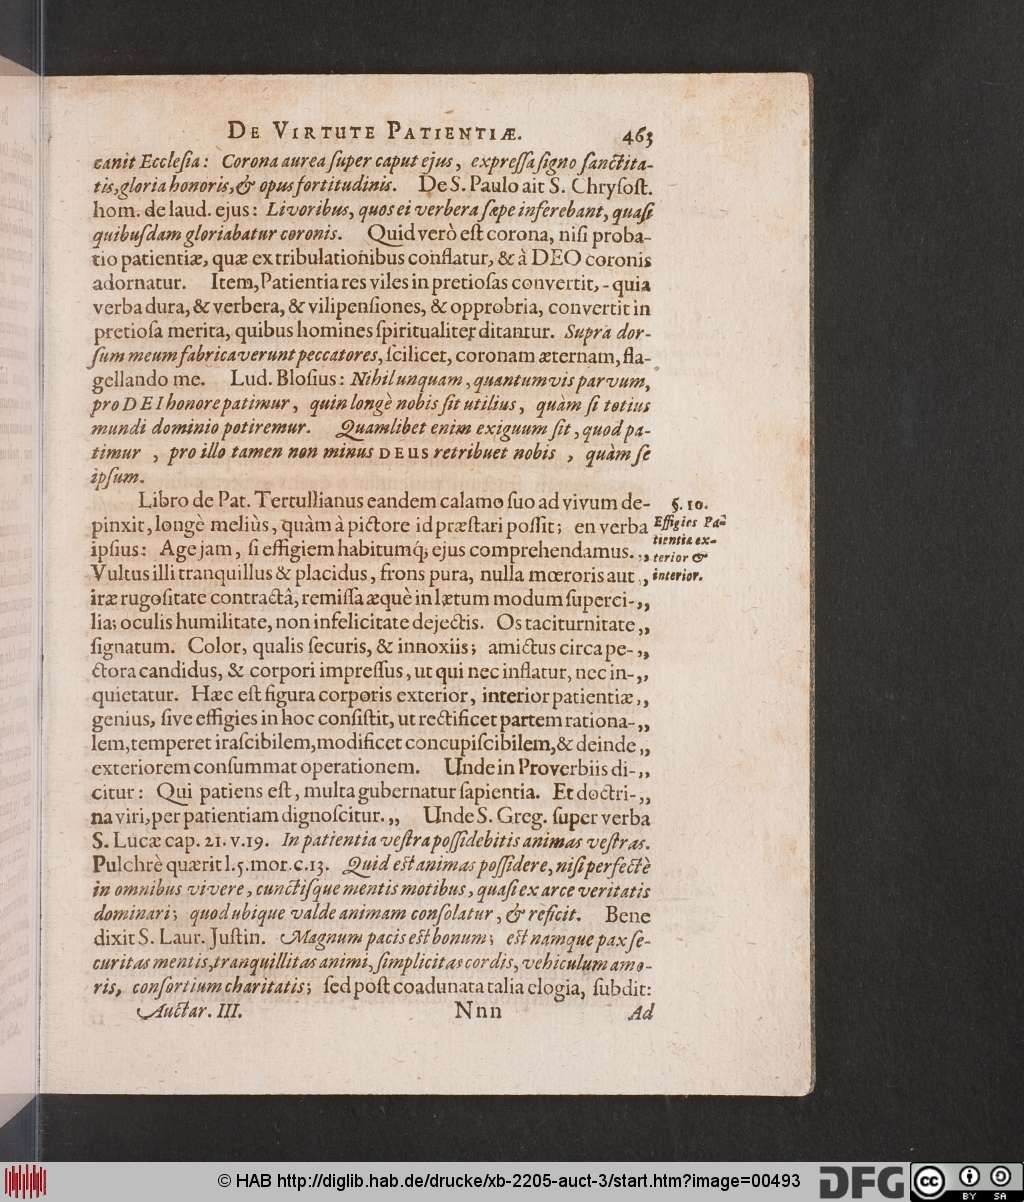 De Virtute Patientiæ. 463
canit Ecclesia: Corona aurea super caput ejus, expressa signo sanctita-
tis, gloria honoris, & opus fortitudinis. De S. Paulo ait S. Chrysost.
hom. de laud. ejus: Livoribus, quos ei verbera sæpe inferebant, quasi
quibusdam gloriabatur coronis. Quid verò est corona, nisi proba-
tio patientiæ, quæ ex tribulationibus conflatur, & à DEO coronis
adornatur. Item, Patientia res viles in pretiosas convertit, - quia
verba dura, & verbera, & vilipensiones, & opprobria, convertit in
pretiosa merita, quibus homines spiritualiter ditantur. Supra dor-
sum meum fabricaverunt peccatores, scilicet, coronam æternam, fla-
gellando me. Lud. Blosius: Nihil unquam, quantumvis parvum,
pro DEI honore patimur, quin longè nobis sit utilius, quàm si totius
mundi dominio potiremur. Quamlibet enim exiguum sit, quod pa-
timur, pro illo tamen non minus DEUS retribuet nobis, quàm se
ipsum.
Libro de Pat. Tertullianus eandem calamo suo ad vivum de-
pinxit, longè meliùs, quàm à pictore id præstari possit; en verba
ipsius: Age jam, si effigiem habitumq́; ejus comprehendamus. „
Vultus illi tranquillus & placidus, frons pura, nulla mœroris aut „
iræ rugositate contractâ, remissa æquè in lætum modum superci- „
lia; oculis humilitate, non infelicitate dejectis. Os taciturnitate „
signatum. Color, qualis securis, & innoxiis; amictus circa pe- „
ctora candidus, & corpori impressus, ut qui nec inflatur, nec in- „
quietatur. Hæc est figura corporis exterior, interior patientiæ „
genius, sive effigies in hoc consistit, ut rectificet partem rationa- „
lem, temperet irascibilem, modificet concupiscibilem, & deinde „
exteriorem consummat operationem. Unde in Proverbiis di- „
citur: Qui patiens est, multa gubernatur sapientia. Et doctri- „
na viri, per patientiam dignoscitur. „ Unde S. Greg. super verba
S. Lucæ cap. 21. v. 19. In patientia vestra possidebitis animas vestras.
Pulchrè quærit l. 5. mor. c. 13. Quid est animas possidere, nisi perfectè
in omnibus vivere, cunctisque mentis motibus, quasi ex arce veritatis
dominari; quod ubique valde animam consolatur, & reficit. Bene
dixit S. Laur. Justin. Magnum pacis est bonum; est namque pax se-
curitas mentis, tranquillitas animi, simplicitas cordis, vehiculum amo-
ris, consortium charitatis; sed post coadunata talia elogia, subdit:
Auctar. III. Nnn Ad
§. 10.
Effigies Pa-
tientiæ ex-
terior &
interior.
© HAB http://diglib.hab.de/drucke/xb-2205-auct-3/start.htm?image=00493
DFG
cc BY SA